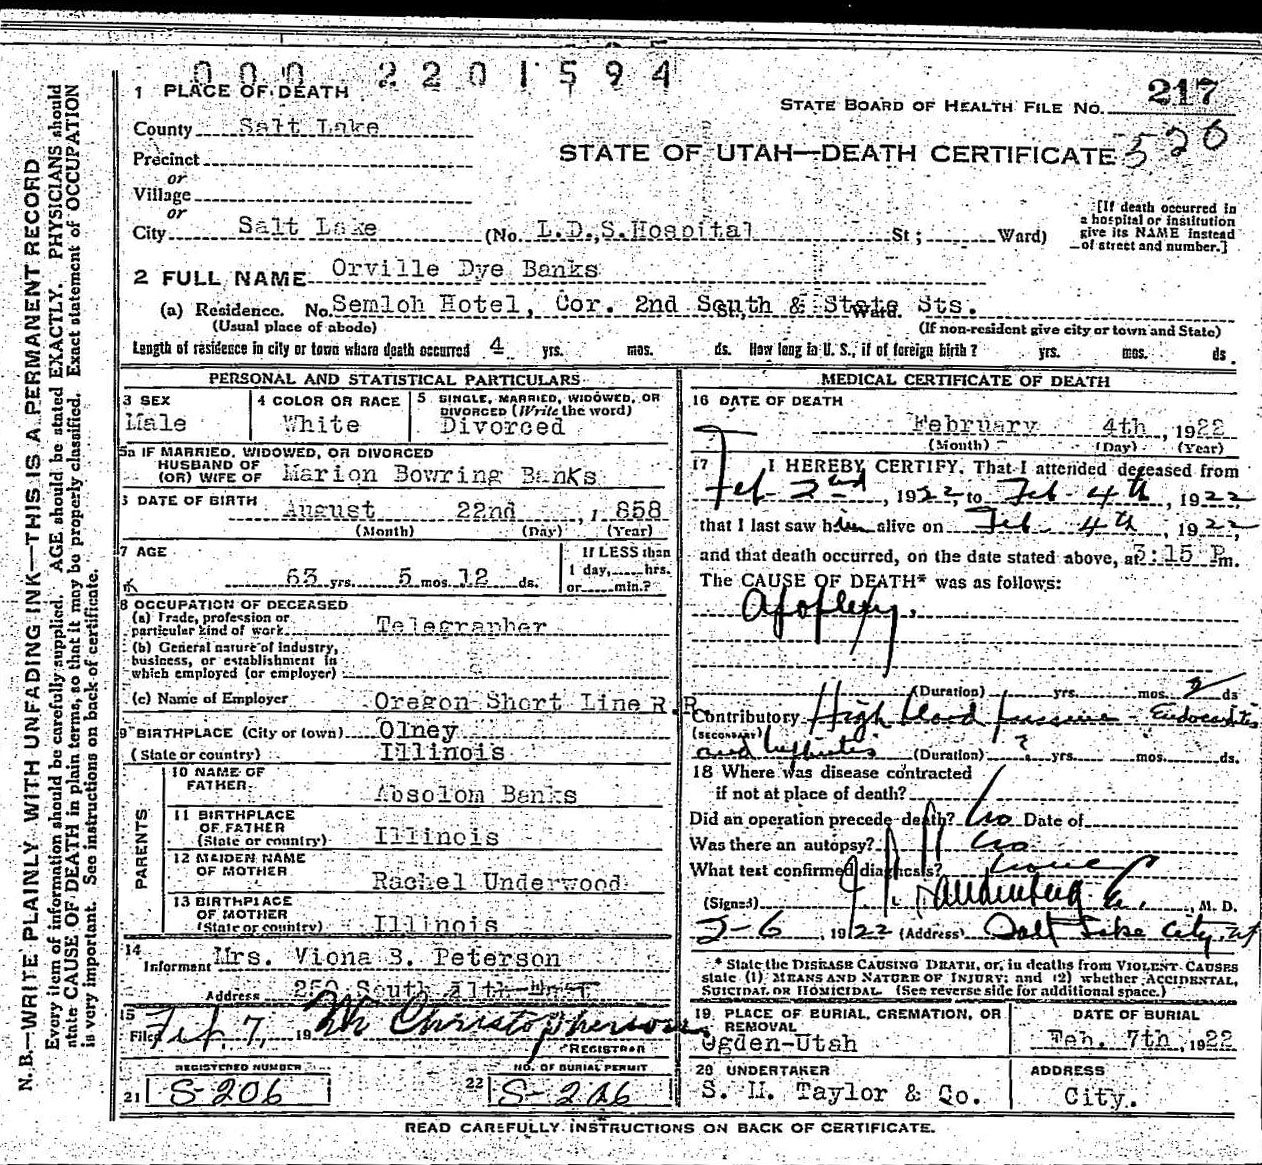 000 2201594
1 PLACE OF DEATH
STATE BOARD OF HEALTH FILE NO. 217
County Salt Lake
STATE OF UTAH—DEATH CERTIFICATE 526
Precinct
or
Village
or
City Salt Lake (No. L.D.S. Hospital St ; Ward)
[If death occurred in a hospital or institution give its NAME instead of street and number.]
2 FULL NAME Orville Dye Banks
(a) Residence. No. Semloh Hotel, Cor. 2nd South & State Sts. St., Ward.
(Usual place of abode) (If non-resident give city or town and State)
Length of residence in city or town where death occurred 4 yrs. mos. ds. How long in U. S., if of foreign birth? yrs. mos. ds.
N.B.—WRITE PLAINLY WITH UNFADING INK—THIS IS A PERMANENT RECORD
Every item of information should be carefully supplied. AGE should be stated EXACTLY. PHYSICIANS should
state CAUSE OF DEATH in plain terms, so that it may be properly classified. Exact statement of OCCUPATION
is very important. See instructions on back of certificate.
PERSONAL AND STATISTICAL PARTICULARS
3 SEX Male
4 COLOR OR RACE White
5 SINGLE, MARRIED, WIDOWED, OR DIVORCED (Write the word) Divorced
5a IF MARRIED, WIDOWED, OR DIVORCED
HUSBAND OF
(OR) WIFE OF Marion Bowring Banks
DATE OF BIRTH August 22nd, 1858
(Month) (Day) (Year)
7 AGE 63 yrs. 5 mos. 12 ds.
If LESS than
1 day, hrs.
or min.?
8 OCCUPATION OF DECEASED
(a) Trade, profession or
particular kind of work Telegrapher
(b) General nature of industry,
business, or establishment in
which employed (or employer)
(c) Name of Employer Oregon Short Line R.R.
9 BIRTHPLACE (City or town) Olney
(State or country) Illinois
PARENTS
10 NAME OF
FATHER Absolom Banks
11 BIRTHPLACE
OF FATHER
(State or country) Illinois
12 MAIDEN NAME
OF MOTHER Rachel Underwood
13 BIRTHPLACE
OF MOTHER
(State or country) Illinois
14 Informant Mrs. Viona B. Peterson
Address South 11th West
15 Filed Feb, 7, 19 M Christopherson
REGISTRAR
REGISTERED NUMBER
21 S-206
NO. OF BURIAL PERMIT
22 S-206
MEDICAL CERTIFICATE OF DEATH
16 DATE OF DEATH
February 4th, 1922
(Month) (Day) (Year)
17 I HEREBY CERTIFY, That I attended deceased from
Feb 2nd, 1922 to Feb - 4th, 1922
that I last saw him alive on Feb 4th, 1922,
and that death occurred, on the date stated above, at 3:15 P.m.
The CAUSE OF DEATH* was as follows:
Apoplexy.
(Duration) yrs. mos. 2 ds
Contributory High blood pressure - Endocarditis
(SECONDARY) and Nephritis (Duration) ? yrs. mos. ds.
18 Where was disease contracted
if not at place of death?
Did an operation precede death? No Date of
Was there an autopsy? No
What test confirmed diagnosis?
(Signed) , M. D.
2-6, 1922 (Address) Salt Lake City, Ut
* State the DISEASE CAUSING DEATH, or, in deaths from VIOLENT CAUSES
state (1) MEANS AND NATURE OF INJURY; and (2) whether ACCIDENTAL,
SUICIDAL or HOMICIDAL. (See reverse side for additional space.)
19. PLACE OF BURIAL, CREMATION, OR
REMOVAL
Ogden-Utah
DATE OF BURIAL
Feb. 7th, 1922
20 UNDERTAKER
S. H. Taylor & Co.
ADDRESS
City.
READ CAREFULLY INSTRUCTIONS ON BACK OF CERTIFICATE.